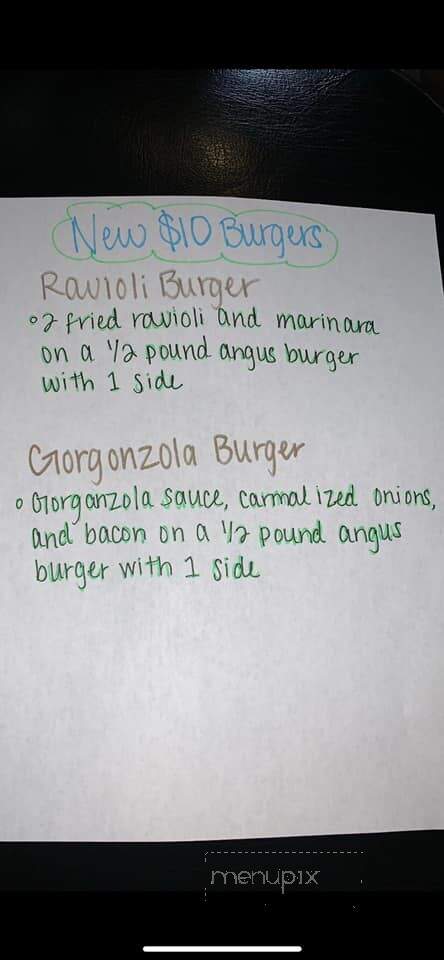 New $10 Burgers
Ravioli Burger
◦ 2 fried ravioli and marinara
on a 1/2 pound angus burger
with 1 side
Gorgonzola Burger
◦ Gorganzola sauce, carmalized onions,
and bacon on a 1/2 pound angus
burger with 1 side
menupix